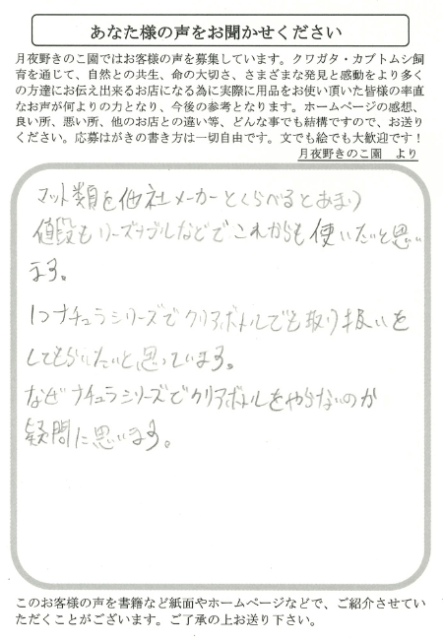 あなた様の声をお聞かせください
月夜野きのこ園ではお客様の声を募集しています。クワガタ・カブトムシ飼
育を通じて、自然との共生、命の大切さ、さまざまな発見と感動をより多く
の方達にお伝え出来るお店になる為に実際に用品をお使い頂いた皆様の率直
なお声が何よりの力となり、今後の参考となります。ホームページの感想、
良い所、悪い所、他のお店との違い等、どんな事でも結構ですので、お送り
ください。応募はがきの書き方は一切自由です。文でも絵でも大歓迎です！
月夜野きのこ園　より
マット類を他社メーカーとくらべるとあまり
値段もリーズナブルなどでこれからも使いたいと思い
ます。
1つナチュラシリーズでクリアボトルでも取り扱いを
してもらいたいと思っています。
なぜナチュラシリーズでクリアボトルをやらないのか
疑問に思います。
このお客様の声を書籍など紙面やホームページなどで、ご紹介させてい
ただくことがございます。ご了承の上お送り下さい。